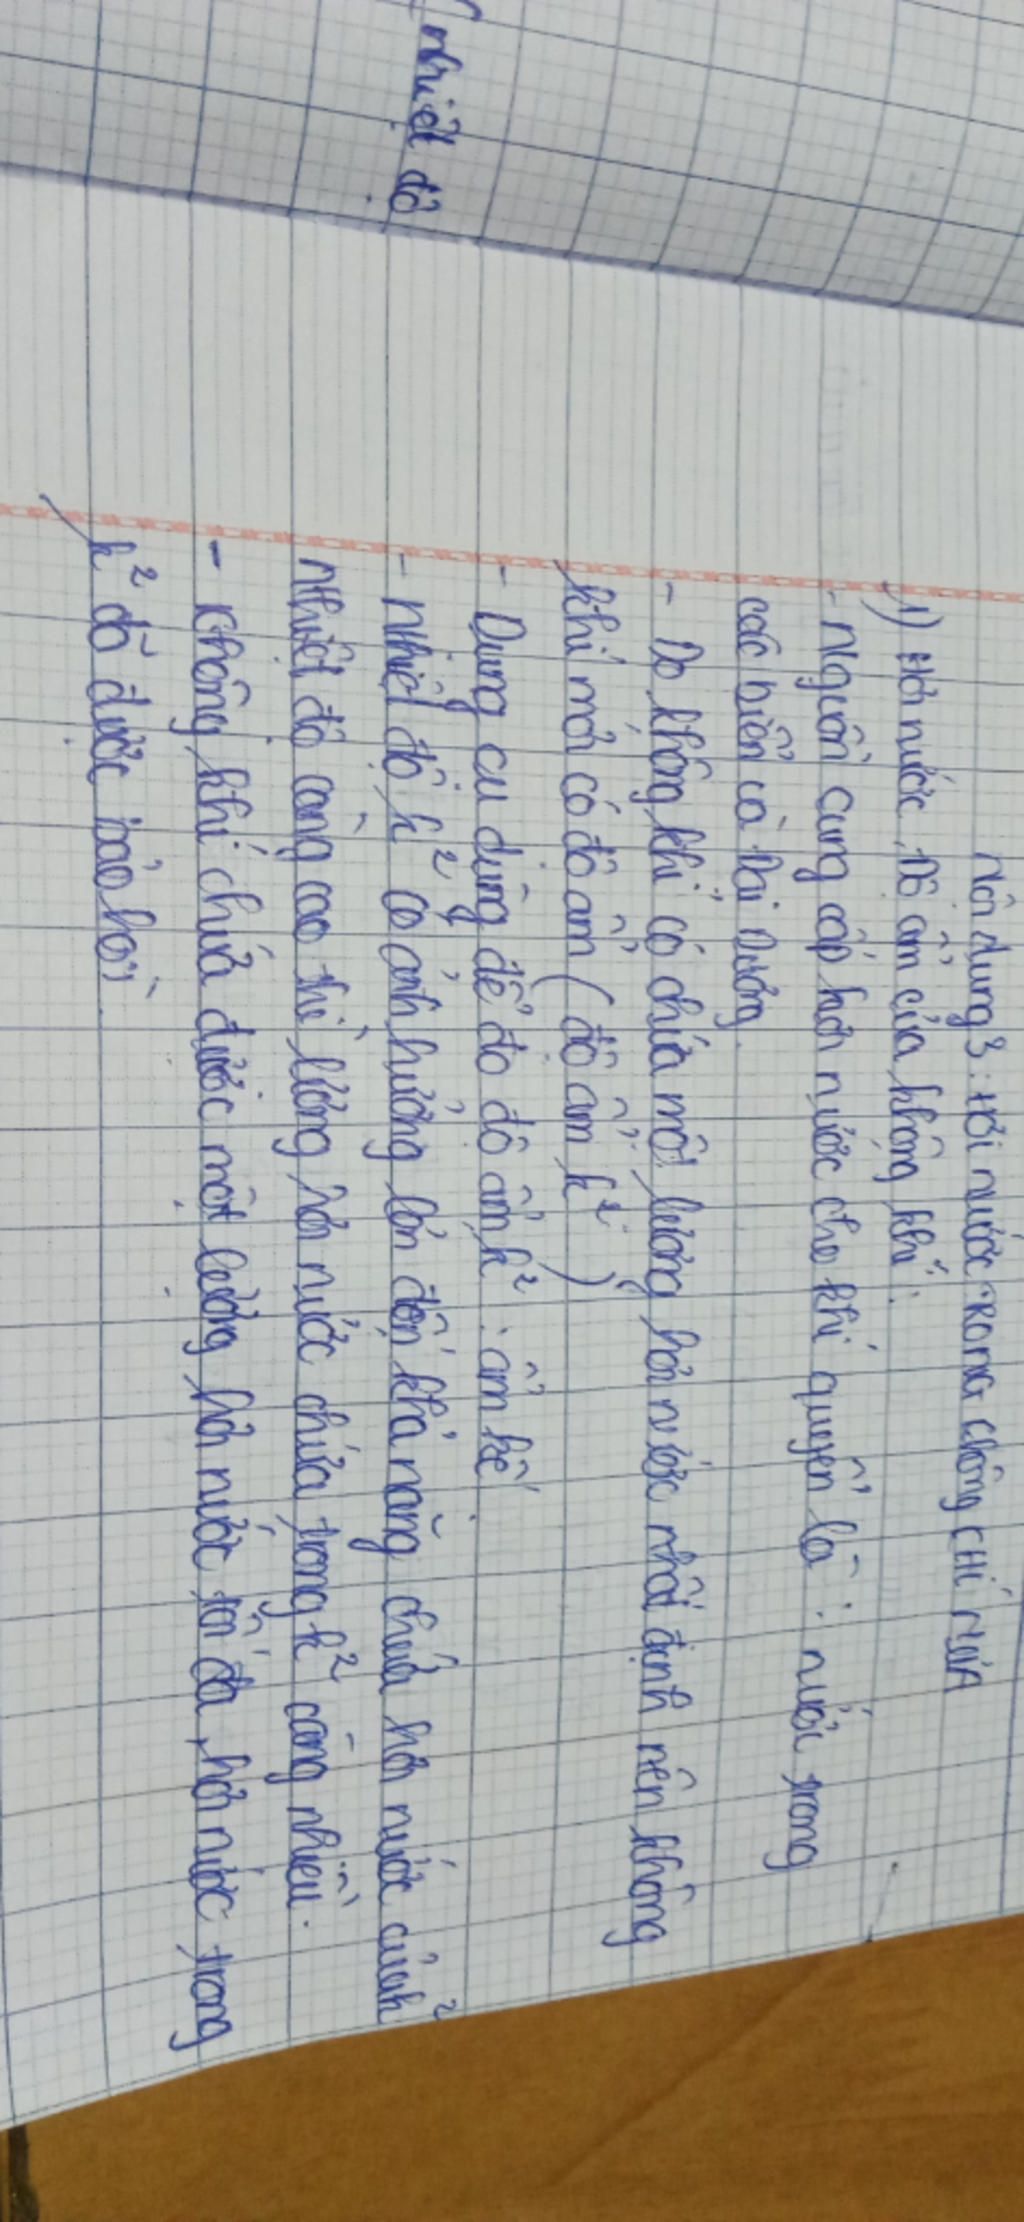 nhiệt độ
Nội dung 3: Hơi nước TRONG không CHÍ MƯA
1) Hơi nước, độ ẩm của không khí:
- Nguồn cung cấp hơi nước cho khí quyển là: nước trong
các biển và Đại Dương.
- Do không khí có chứa một lượng hơi nước nhất định nên không
khí mới có độ ẩm (độ ẩm k²)
- Dụng cụ dùng để đo độ ẩm k²: ẩm kế.
- Nhiệt độ k² có ảnh hưởng lớn đến khả năng chứa hơi nước của k²
nhiệt độ càng cao thì lượng hơi nước chứa trong k² càng nhiều.
- Không khí chứa được một lượng hơi nước tối đa, hơi nước trong
k² đã được bão hòa.